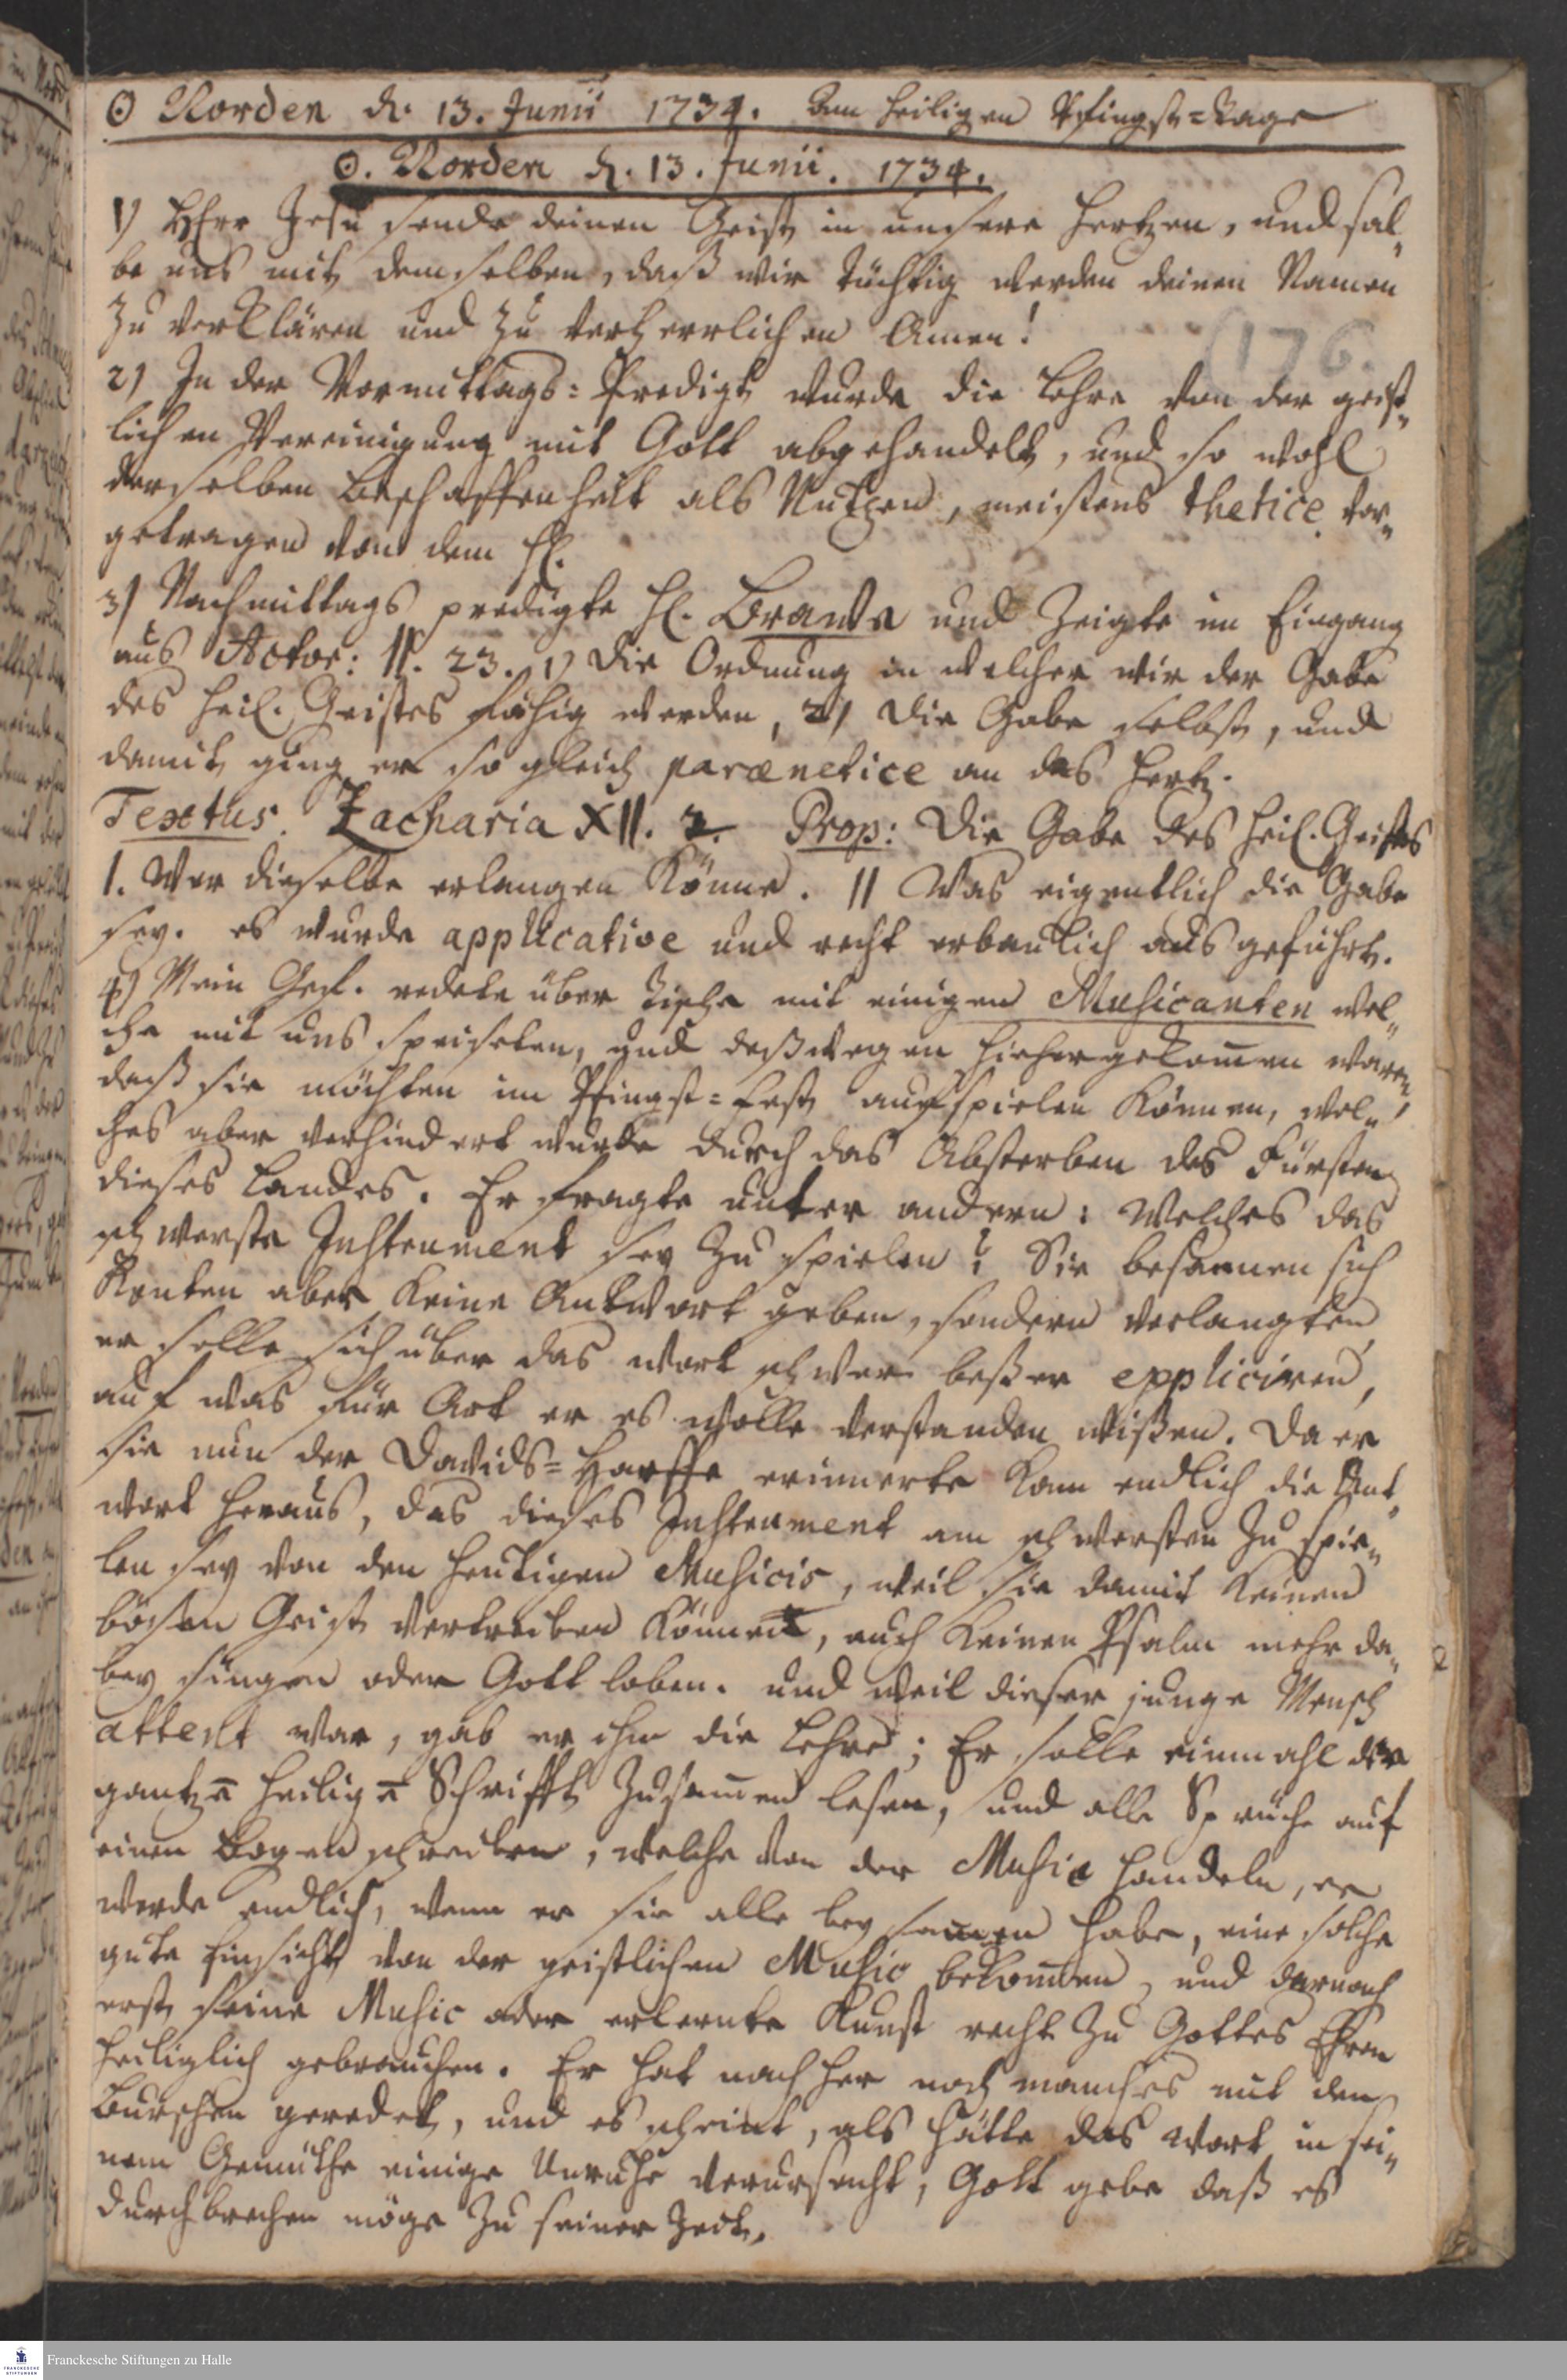 ☉ Norden d. 13. Junii 1734. Am heiligen Pfingst=Tage
☉. Norden d. 13. Junii. 1734.
1) HErr Jesu sende deinen Geist in unsere Hertzen, und sal„
be uns mit demselben, daß wir tüchtig werden deinen Namen
zu verklären und zu verherrlichen Amen!
176.
2) In der Vormittags=Predigt wurde die Lehre von der geist„
lichen Vereinigung mit Gott abgehandelt, und so wohl
derselben Beschaffenheit als Nutzen, meistens thetice vor„
getragen von dem H.
3) Nachmittags predigte H. Brawe und zeigte im Eingang
aus Actor: II. 23. 1) Die Ordnung in welcher wir der Gabe
des heil. Geistes fähig werden, 2) Die Gabe selbst, und
damit ging er so gleich parænetice an das Hertz.
Textus. Zacharia XII. Prop: Die Gabe des heil. Geistes
I. Wer dieselbe erlangen könne. II Was eigentlich die Gabe
sey. es wurde applicative und recht erbaulich ausgeführt.
4) Mein Gef. redete über Tische mit einigen Musicanten wel„
che mit uns speiseten, und deßwegen hieher gekom̄en waren,
daß sie möchten im Pfingst=Fest aufspielen können, wel„
ches aber verhindert wurde durch das Absterben des Fürsten
dieses Landes. Er fragte unter andern: Welches das
schwerste Instrument sey zu spielen? Sie besannen sich
konten aber keine Antwort geben, sondern verlangten
er solle sich über das wort schwer beßer expliciren,
auf was für Art er es wolle verstanden wißen. Da er
sie nun der Davids=Harffe erinnerte kam endlich die Ant„
wort heraus, das dieses Instrument am schwersten zu spie„
len sey von den heutigen Musicis, weil sie damit keinen
bösen Geist vertreiben können, auch keinen Psalm mehr da„
bey singen oder Gott loben. und weil dieser junge Mensch
attent war, gab er ihm die Lehre; Er solle einmahl die
gantzē heiligē Schrifft zusam̄en lesen, und alle Sprüche auf
einen Bogen schreiben, welche von der Music handeln, er
werde endlich, wenn er sie alle beysam̄en habe, eine solche
gute Einsicht von der geistlichen Music bekom̄en, und darnach
erst seine Music oder erlernte Kunst recht zu Gottes Ehren
heiliglich gebrauchen. Er hat nach her noch manches mit den
Burschen geredet, und es scheint, als hätte das wort in sei„
nem Gemüthe einige Unruhe verursacht, Gott gebe daß es
durchbrechen möge zu seiner Zeit.
Franckesche Stiftungen zu Halle